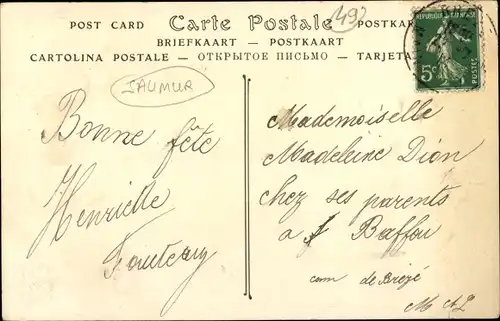 POST CARD Carte Postale POSTKAR
BRIEFKAART — POSTKAART
CARTOLINA POSTALE — ОТКРЫТОЕ ПИСЬМО — TARJETA
49
REPUBLIQUE FRANÇAISE
5c
POSTES
SAUMUR
Bonne fête
Henriette
Mademoiselle
Madeleine Dion
chez ses parents
a Baffou
com de Brézé
M &L